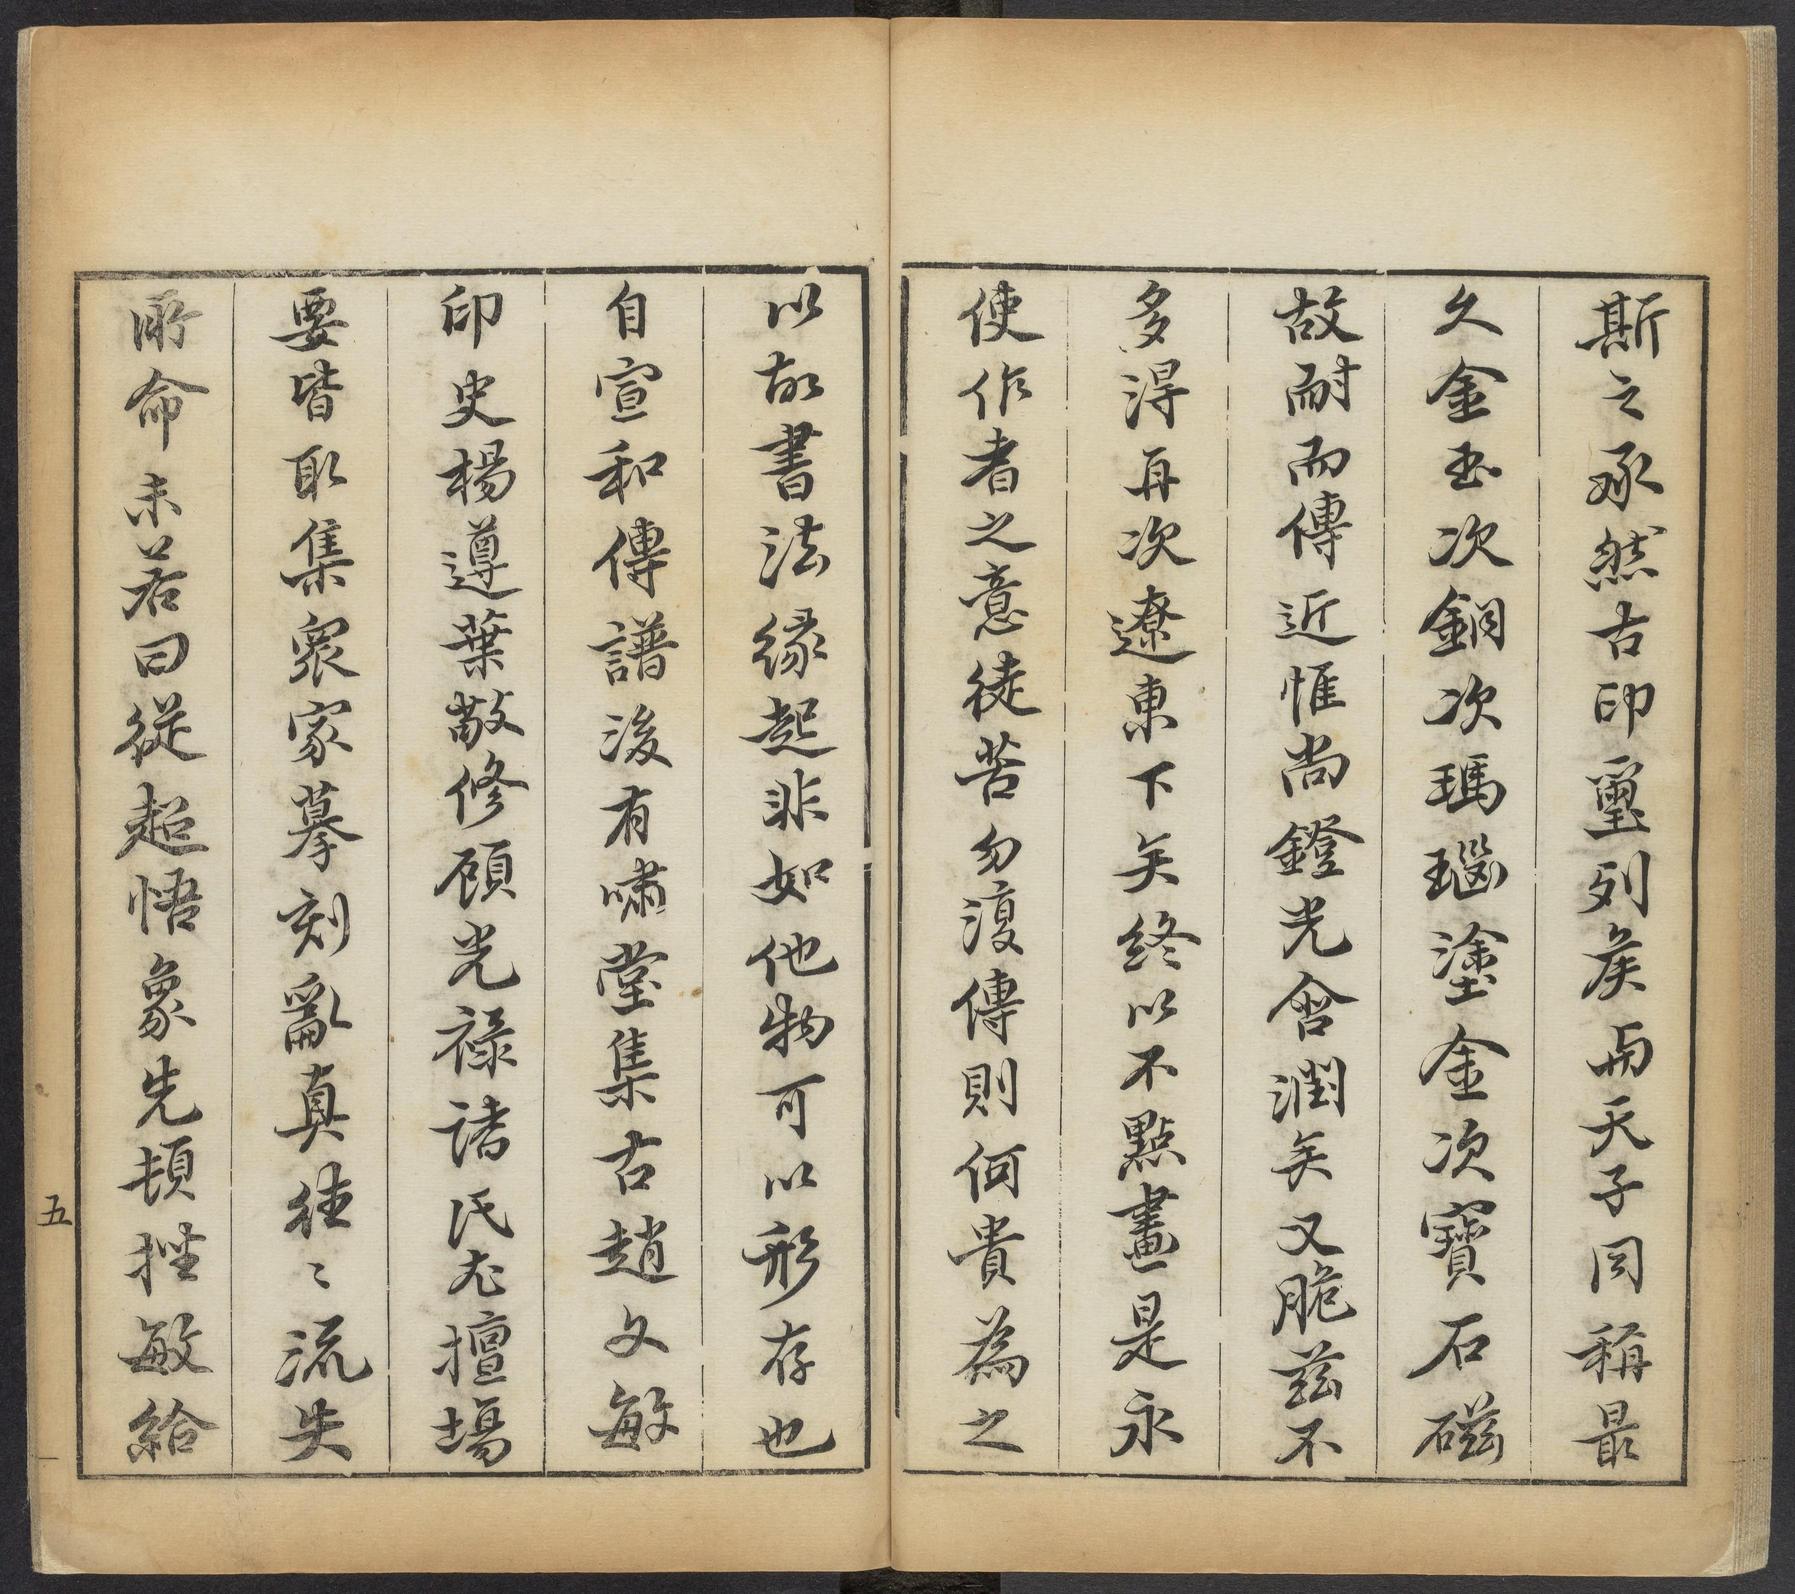 斯之承然古印璽列矦與天子同稱最
久金玉次銅次瑪瑙塗金次寶石磁
故耐而傳近惟尚鐙光含潤矣又脆兹不
多得再次遼東下矣終以不點畫是永
使作者之意徒苦勿復傳則何貴為之
以故書法緣起非如他物可以形存也
自宣和傳譜後有嘯堂集古趙文敏
印史楊遵葉敬修顧光祿諸氏尤擅場
要皆取集衆家摹刻亂真往〻流失
所命未若曰從超悟象先頓挫敏給
五